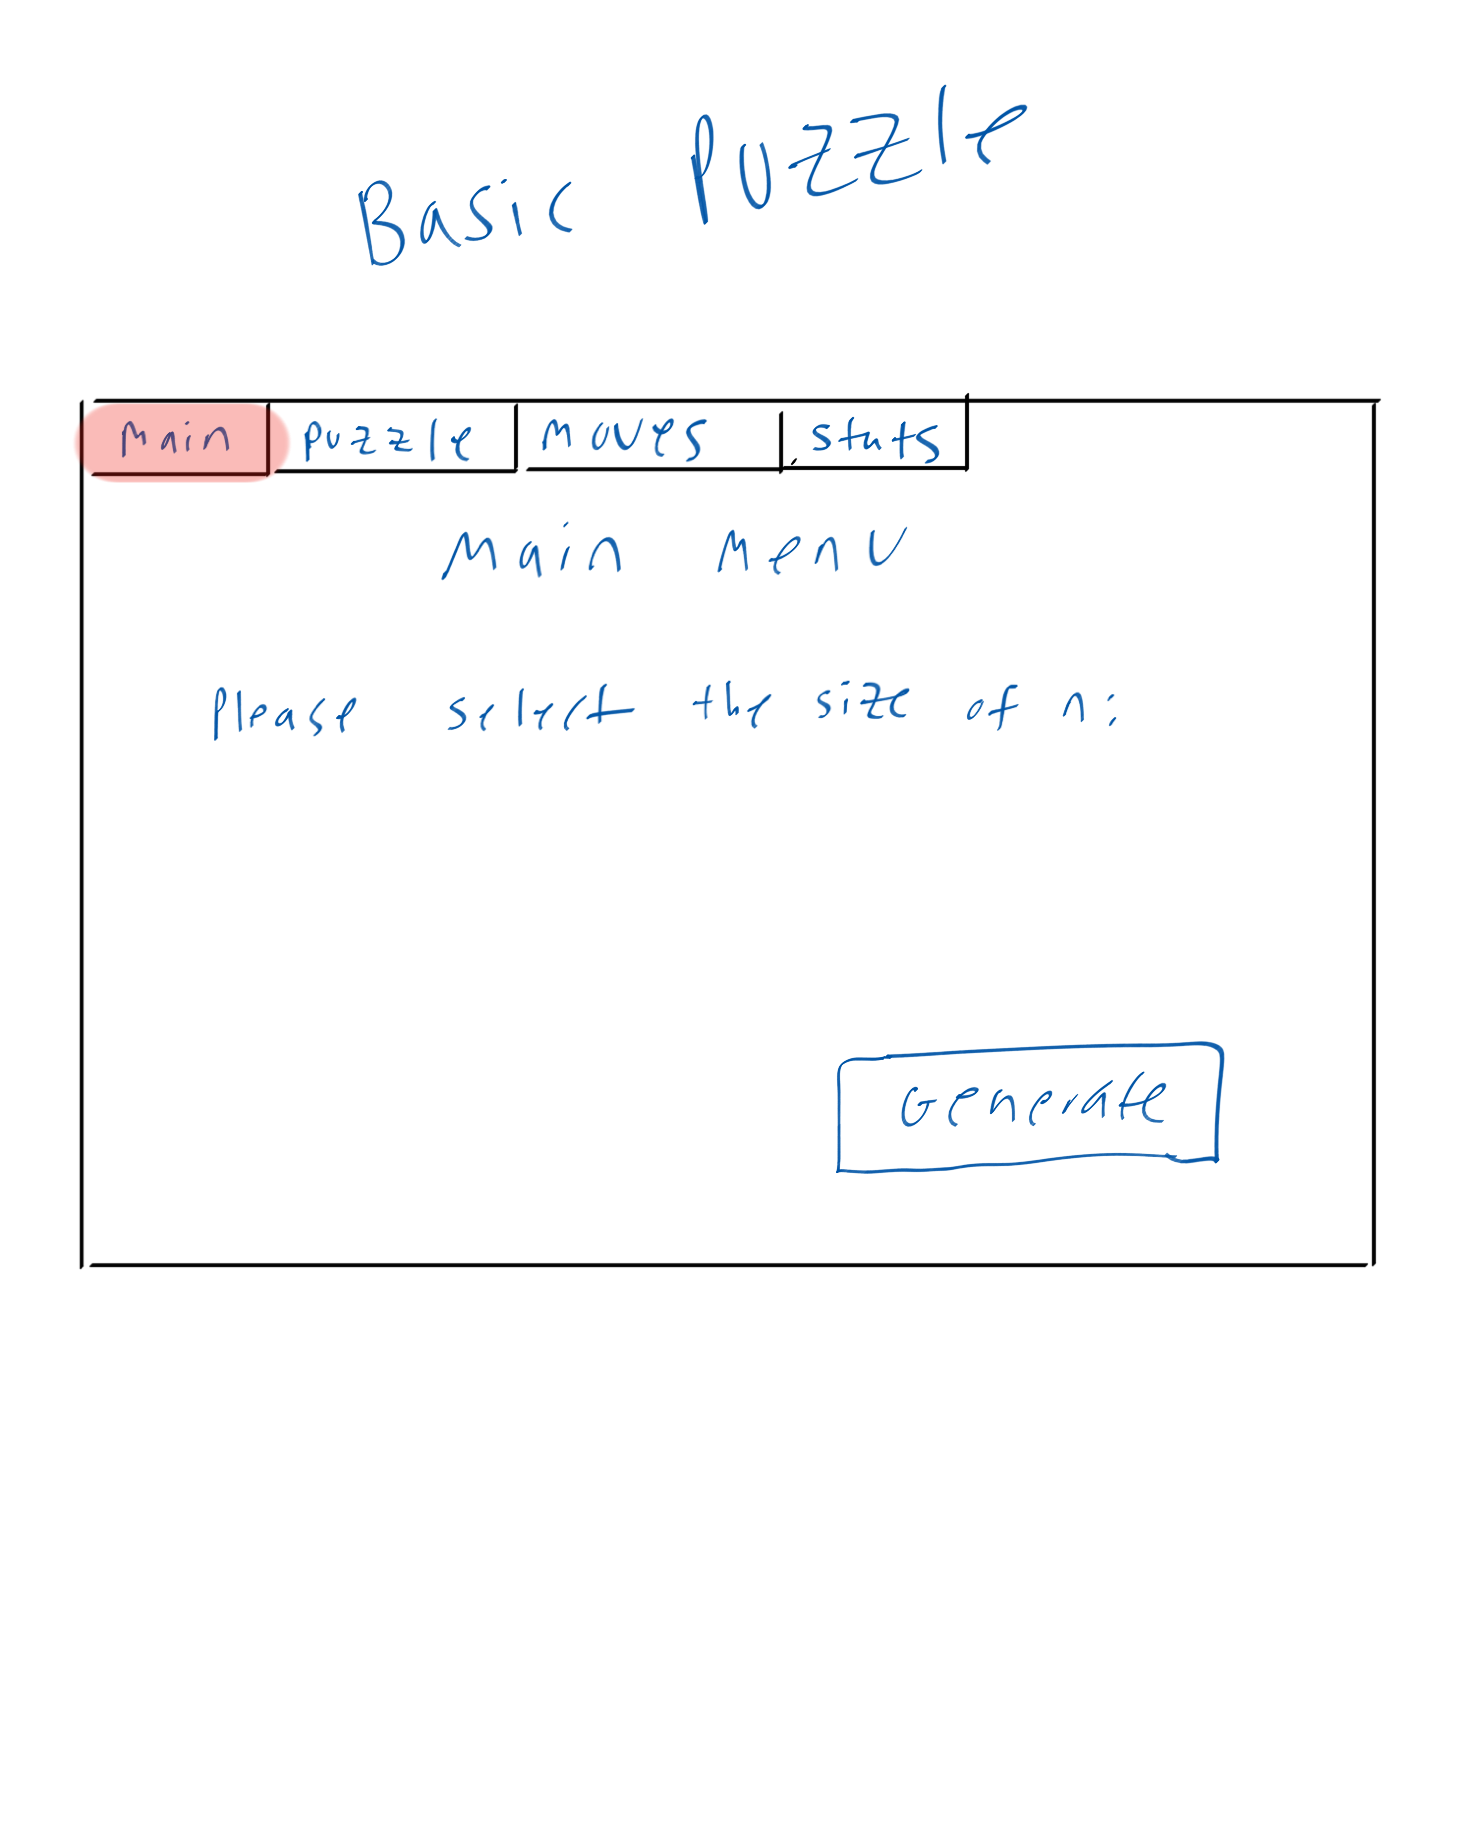 Basic Puzzle
Main puzzle moves stats
Main Menu
Please select the size of n:
Generate